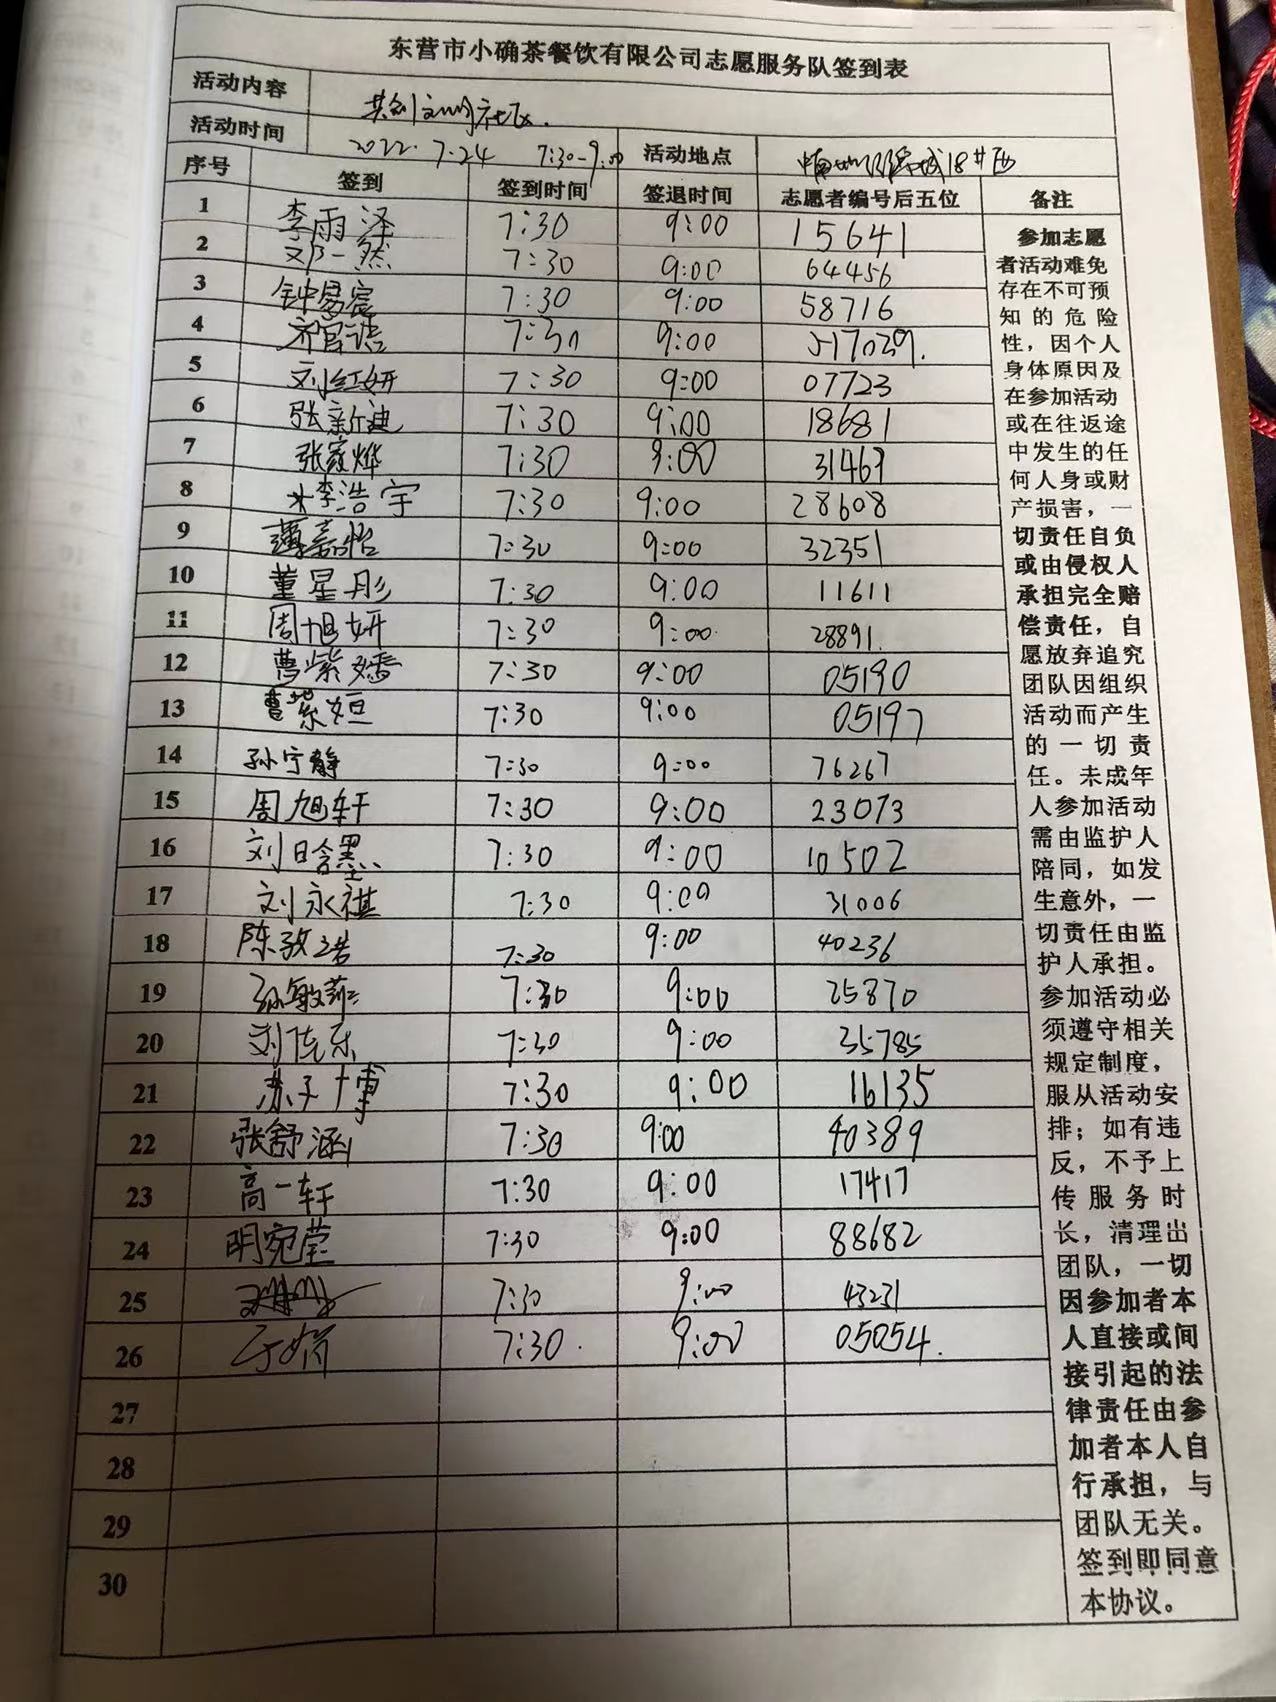 东营市小确茶餐饮有限公司志愿服务队签到表
活动内容 共创文明社区.
活动时间 2022.7.24 7:30-9:00 活动地点 18#西
序号 签到 签到时间 签退时间 志愿者编号后五位 备注
1 李雨泽 7:30 9:00 15641
2 邓一然 7:30 9:00 64456
3 钟易宸 7:30 9:00 58716
4 7:30 9:00
5 刘红妍 7:30 9:00 07723
6 张新迪 7:30 9:00 18681
7 张家烨 7:30 9:00 31467
8 李浩宇 7:30 9:00 28608
9 薄嘉怡 7:30 9:00 32351
10 董星彤 7:30 9:00 11611
11 周旭妍 7:30 9:00 28891.
12 曹紫嫣 7:30 9:00 05190
13 曹紫姮 7:30 9:00 05197
14 孙宁静 7:30 9:00 76267
15 周旭轩 7:30 9:00 23073
16 刘晗墨 7:30 9:00 10502
17 刘永祺 7:30 9:00 31006
18 陈孜浩 7:30 9:00 40236
19 孙敏菲 7:30 9:00 25870
20 7:30 9:00 35785
21 苏子博 7:30 9:00 16135
22 张舒涵 7:30 9:00 40389
23 高一轩 7:30 9:00 17417
24 明宛莹 7:30 9:00 88682
25 7:30 9:00 43231
26 7:30. 9:00 05054.
27
28
29
30
参加志愿
者活动难免
存在不可预
知的危险
性，因个人
身体原因及
在参加活动
或在往返途
中发生的任
何人身或财
产损害，一
切责任自负
或由侵权人
承担完全赔
偿责任，自
愿放弃追究
团队因组织
活动而产生
的一切责
任。未成年
人参加活动
需由监护人
陪同，如发
生意外，一
切责任由监
护人承担。
参加活动必
须遵守相关
规定制度，
服从活动安
排；如有违
反，不予上
传服务时
长，清理出
团队，一切
因参加者本
人直接或间
接引起的法
律责任由参
加者本人自
行承担，与
团队无关。
签到即同意
本协议。